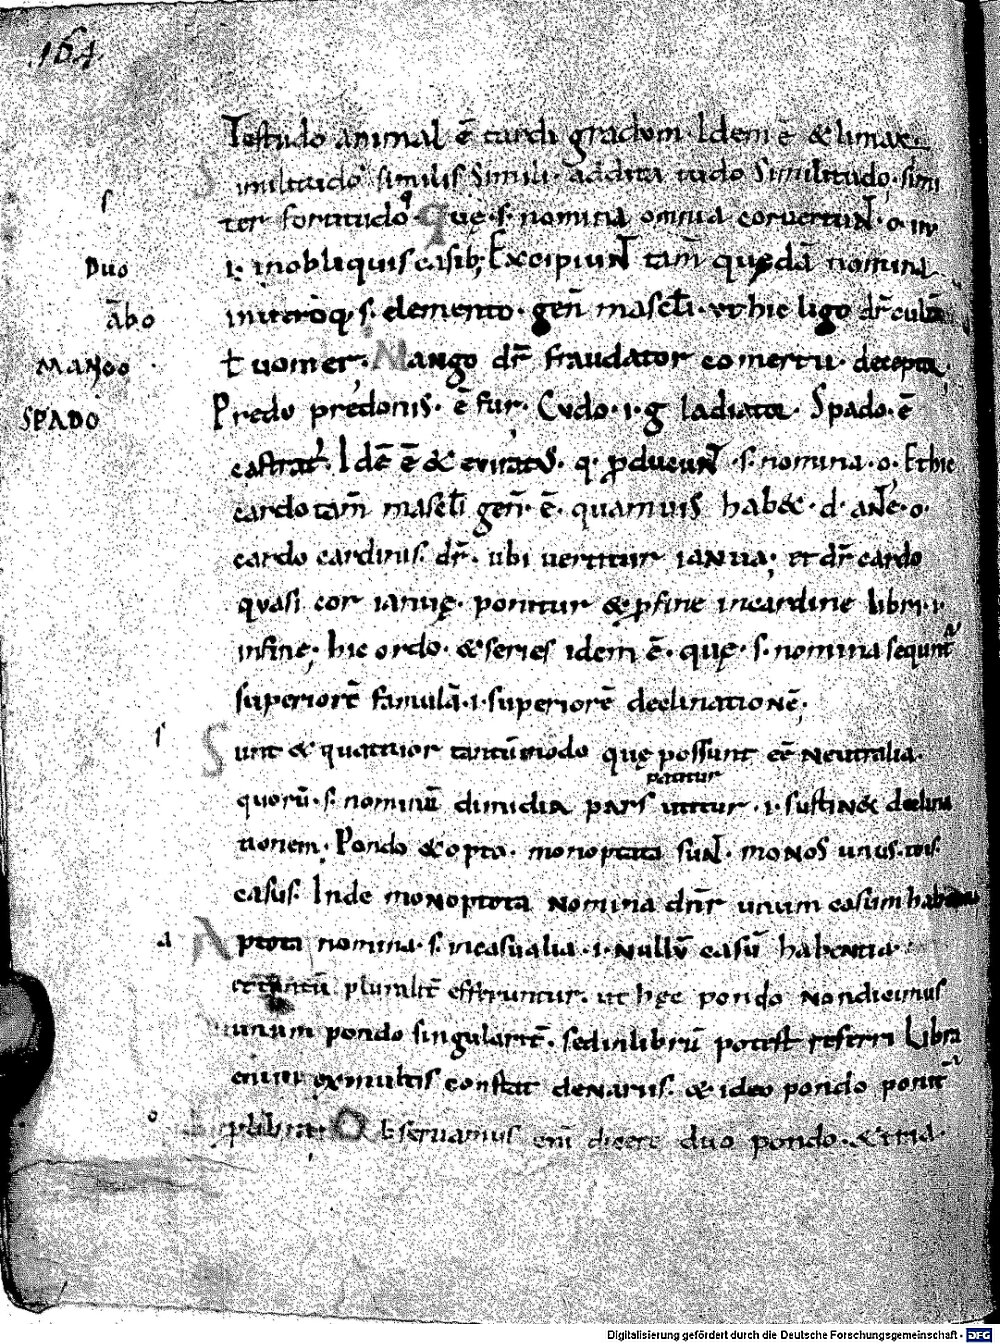 .164.
Testudo animal ē tardi gradum. Idem ē & limax
Similitudo similis simili. addita tudo Similitudo. simi
ſ
ter fortitudo. Que. s. nomina omnia convertun̄. o. in
Duo
.i. inobliquis casib; Excipiun̄ tam̄ quedā nomina
ābo
in utroq; s. elemento. gen̄ mascl̄i. vt hic ligo dr̄ cult
MANGO
ł uomer. Mango dr̄ fraudator comertii. decepto
SPADO
Predo predonis. ē fur. Cudo. i. g ladiator. Spado. ē
castrat'. Idē ē & eviratus. q. producun̄. s. nomina. o. Et hic
cardo tam̄ mascl̄i gen̄. ē. quamuis hab&. d. an̄e. o.
cardo cardinis. dr̄. ubi uertitur ianua; et dr̄ cardo
quasi cor ianuę. ponitur & p fine incardine libri. i.
infine. hic ordo. & series idem ē. quę. s. nomina sequnt̄
superiorē famulā. i. superiorē declinationē.
ſ
Sunt & quattuor tantūmodo quę possunt eē Neutralia.
patitur
quorū. s. nominū dimidia pars utitur. i. sustin& declina
tionem. Pondo & opto. monoptata sun̄. monos unus.
casus. Inde monoptota nomina dn̄r unum casum
a
Aptota nomina. s. incasualia. i. nullū casū habentia
pluralit̄ efferuntur. ut hęc pondo Nondicimus
unum pondo singularit̄. sedinlibrū potest referri Libra
enim exmultis constat denariis. & ideo pondo ponit̄
o
p libra. Obseruamus enī dicere duo pondo. & tria.
Digitalisierung gefördert durch die Deutsche Forschungsgemeinschaft - DFG